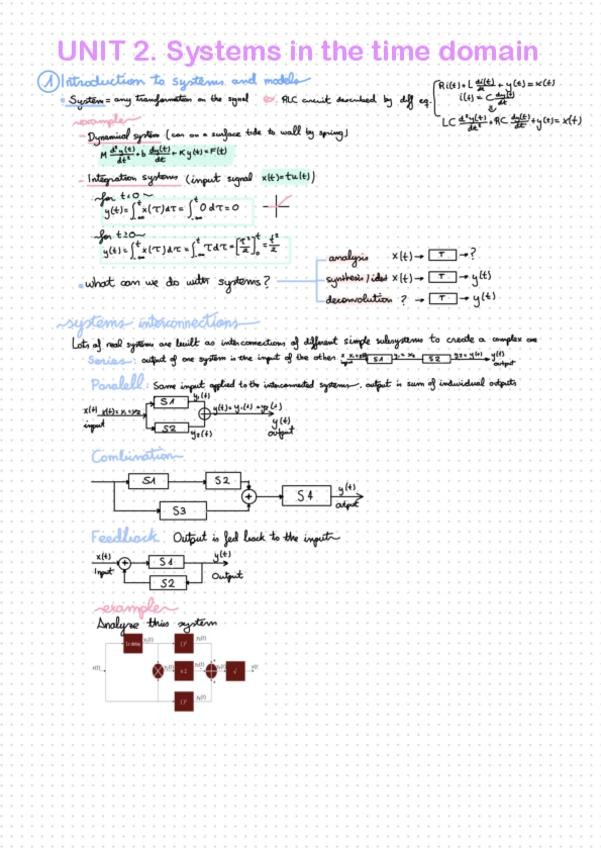 UNIT 2. Systems in the time domain
① Introduction to systems and models
• System = any transformation on the signal ex. RLC circuit described by diff eq. Ri(t) + L di(t)/dt + y(t) = x(t)
i(t) = C dy(t)/dt
⇓
LC d²y(t)/dt² + RC dy(t)/dt + y(t) = x(t)
example
- Dynamical system (car on a surface tide to wall by spring)
M d²y(t)/dt² + b dy(t)/dt + Ky(t) = F(t)
- Integration systems (input signal x(t) = tu(t))
~for t<0~
y(t) = ∫_{-∞}^{t} x(τ)dτ = ∫_{-∞}^{t} 0 dτ = 0
~for t≥0~
y(t) = ∫_{-∞}^{t} x(τ)dτ = ∫_{-∞}^{t} τdτ = [τ²/2]_0^t = t²/2
• What can we do with systems?
analysis x(t) → T → ?
synthesis / x(t) → T → y(t)
deconvolution ? → T → y(t)
systems interconnections
Lots of real systems are built as interconnections of different simple subsystems to create a complex one
Series: output of one system is the input of the other S1 S2 y(t)
output
Paralell: Same input applied to the interconnected systems. output is sum of individual outputs
S1 y₁(t)
x(t)
input
S2 y₂(t)
y(t)
output
Combination
S1 S2
S3
+ S4 y(t)
output
Feedback Output is fed back to the input
x(t) + S1 y(t)
Input S2 Output
example
Analyze this system